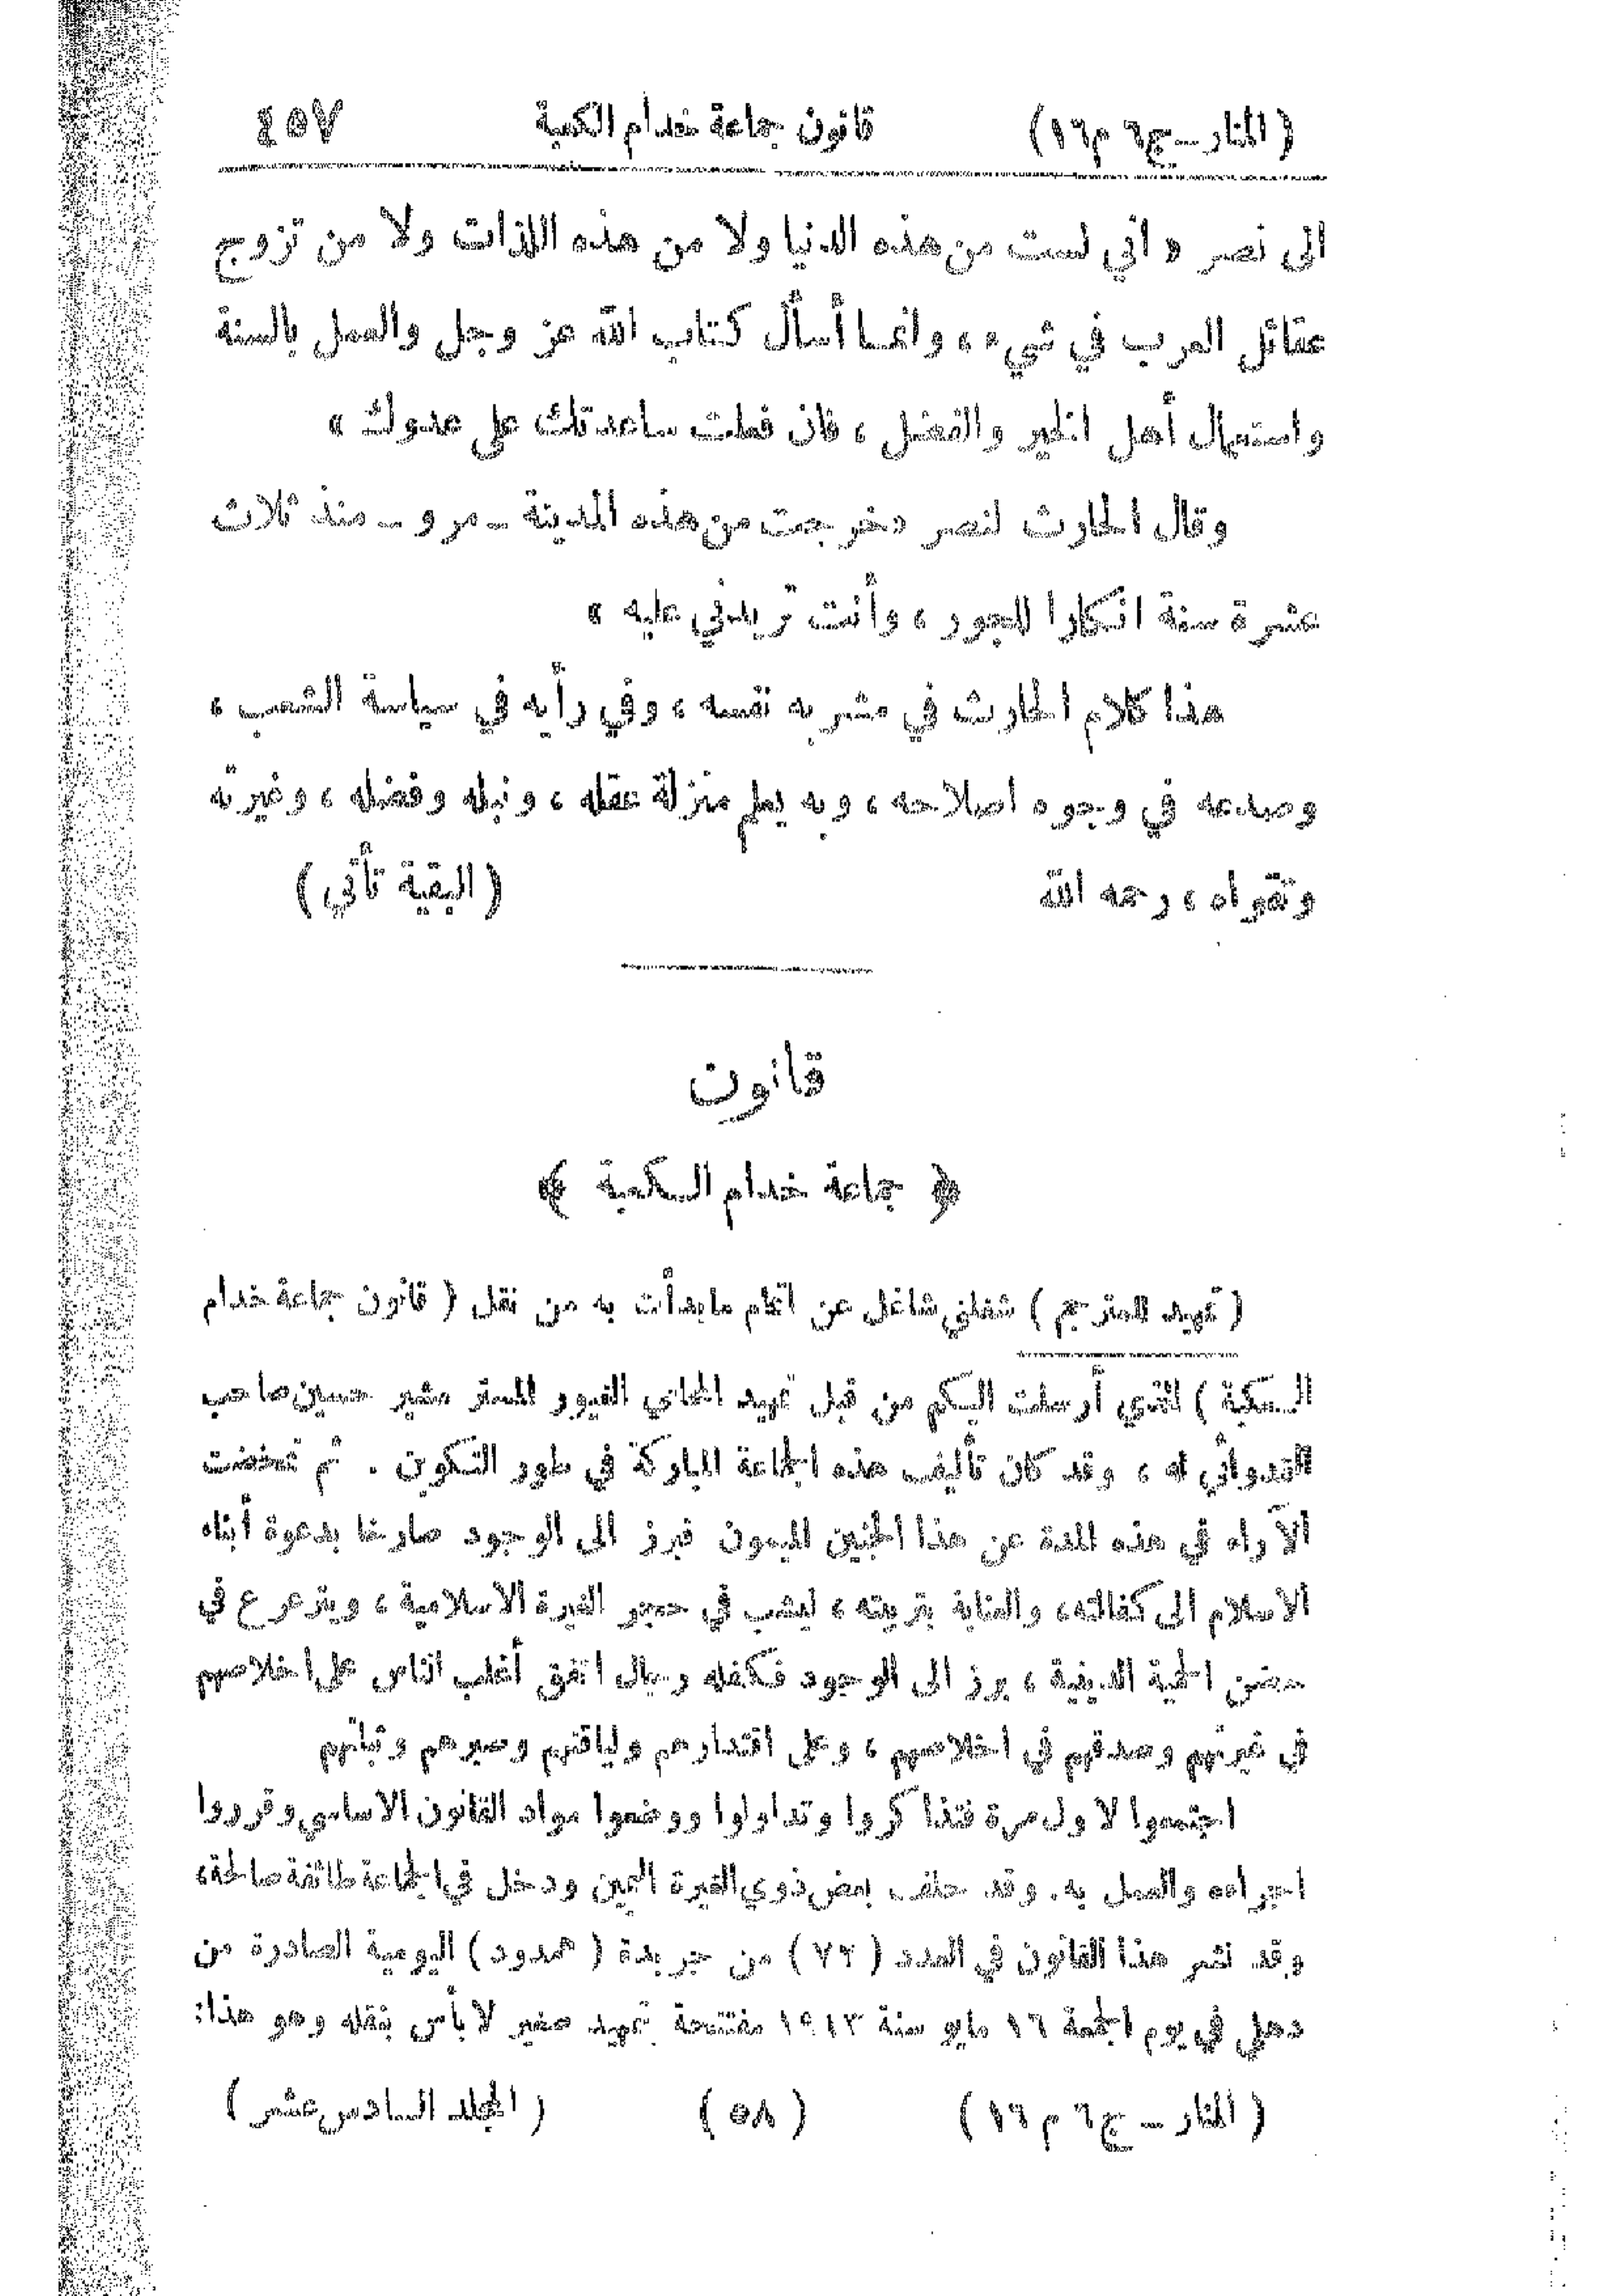 ( المنار – ج ٦ م ١٦ ) قانون جماعة خدام الكعبة ٤٥٧
الى نصر « اني لست من هذه الدنيا ولا من هذه اللذات ولا من تزوج
عقائل العرب في شيء ، وانما أسأل كتاب الله عز وجل والعمل بالسنة
واستعمال أهل الخير والفضل ، فان فعلت ساعدتك على عدوك »
وقال الحارث لنصر « خرجت من هذه المدينة – مرو – منذ ثلاث
عشرة سنة انكارا للجور ، وأنت تريدني عليه »
هذا كلام الحارث في مشربه نفسه ، وفي رأيه في سياسة الشعب ،
وصدعه في وجوه اصلاحه ، وبه يعلم منزلة عقله ، ونبله وفضله ، وغيرته
وتقواه ، رحمه الله ( البقية تأتي )
قانون
﴿ جماعة خدام الكعبة ﴾
( تمهيد للمترجم ) شغلني شاغل عن اتمام ما بدأت به من نقل ( قانون جماعة خدام
الكعبة ) الذي أرسلت اليكم من قبل تمهيد المحامي الغيور المستر مشير حسين صاحب
القدوائي له ، وقد كان تأليف هذه الجماعة المباركة في طور التكوين . ثم تمخضت
الآراء في هذه المدة عن هذا الجنين الميمون فبرز الى الوجود صارخا بدعوة أبناء
الاسلام الى كفالته ، والعناية بتربيته ، ليشب في حجر الغيرة الاسلامية ، ويترعرع في
حضن الحمية الدينية ، برز الى الوجود فكفله رجال اتفق أغلب الناس على اخلاصهم
في غيرتهم وصدقهم في اخلاصهم ، وعلى اقتدارهم ولياقتهم وصبرهم وثباتهم
اجتمعوا لاول مرة فتذاكروا وتداولوا ووضعوا مواد القانون الاساسي وقرروا
اجراءه والعمل به . وقد حلف بعض ذوي الغيرة اليمين ودخل في الجماعة طائفة صالحة ،
وقد نشر هذا القانون في العدد ( ٧٣ ) من جريدة ( همدرد ) اليومية الصادرة من
دهلي في يوم الجمعة ١٦ مايو سنة ١٩١٣ مفتتحة بتمهيد صغير لا بأس بنقله وهو هذا :
( المنار – ج ٦ م ١٦ ) ( ٥٨ ) ( المجلد السادس عشر )